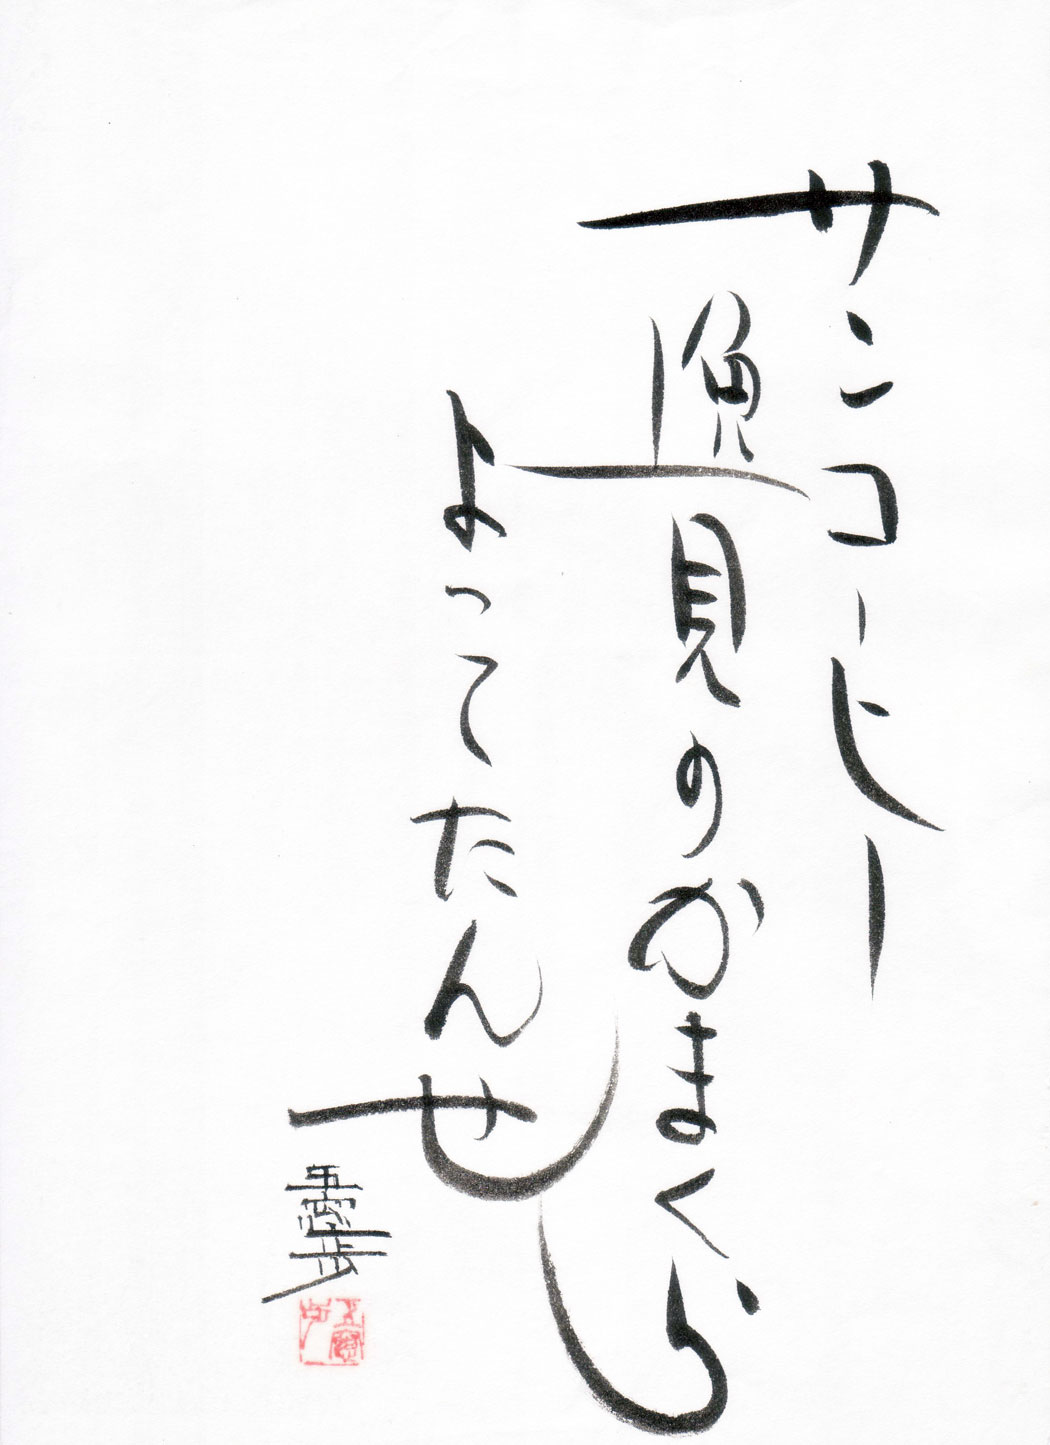 サンコーヒー
見のかまくら
よってたんせ